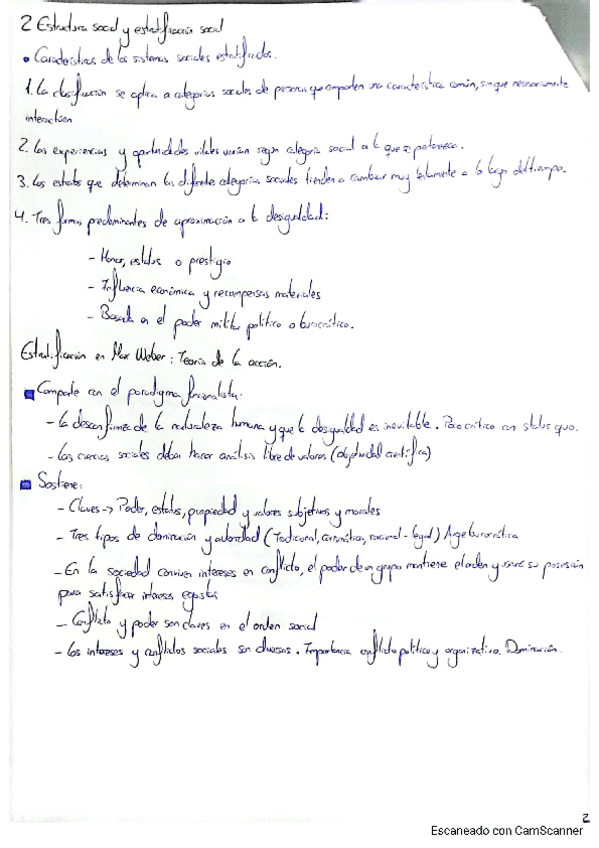 2 Estructura social y estratificación social
• Características de los sistemas sociales estratificados.
1. La clasificación se aplica a categorías sociales de personas que comparten una característica común, sin que necesariamente
interactúen
2. Las experiencias y oportunidades vitales varían según categoría social a la que se pertenezca.
3. Los estatus que determinan las diferentes categorías sociales tienden a cambiar muy lentamente a lo largo del tiempo.
4. Tres formas predominantes de aproximación a la desigualdad:
- Honor, estatus o prestigio
- Influencia económica y recompensas materiales
- Basada en el poder militar político o burocrático.
Estratificación en Max Weber: Teoría de la acción.
Comparte con el paradigma funcionalista:
- La desconfianza de la naturaleza humana y que la desigualdad es inevitable. Poco crítico con status quo.
- Las ciencias sociales deben hacer análisis libre de valores (objetividad científica)
Sostiene:
- Claves -> Poder, estatus, propiedad y valores subjetivos y morales
- Tres tipos de dominación y autoridad (Tradicional, carismática, racional-legal) Auge burocrática
- En la sociedad conviven intereses en conflicto, el poder de un grupo mantiene el orden y usará su posición
para satisfacer intereses egoístas
- Conflicto y poder son claves en el orden social
- Los intereses y conflictos sociales son diversos. Importancia conflicto político y organizativo. Dominación.
2
Escaneado con CamScanner